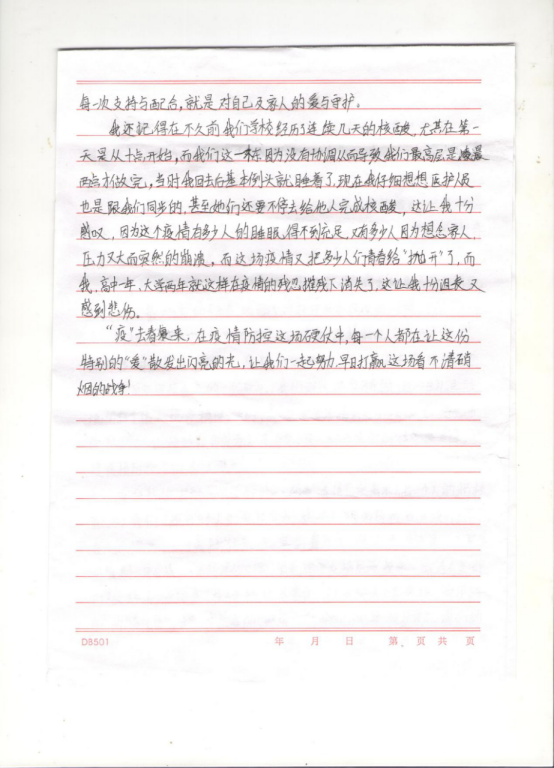 每一次支持与配合,就是对自己及家人的爱与守护。
我还记得在不久前我们学校经历了连续几天的核酸,尤其在第一
天是从十点开始,而我们这一栋因为没有协调从而导致我们最高层是凌晨
两点才做完,当时我回去后基本倒头就睡着了,现在我仔细想想医护人员
也是跟我们同步的,甚至她们还要不停去给他人完成核酸,这让我十分
感叹,因为这个疫情有多少人的睡眠得不到充足,又有多少人因为想念家人,
压力又大而突然的崩溃,而这场疫情又把多少人们青春给"抛开"了,而
我,高中一年,大学两年就这样在疫情的残忍摧残下消失了,这让我十分沮丧又
感到悲伤。
"疫"去春复来,在疫情防控这场硬仗中,每一个人都在让这份
特别的"爱"散发出闪亮的光,让我们一起努力早日打赢这场看不清硝
烟的战争!
DB501 年 月 日 第 页 共 页